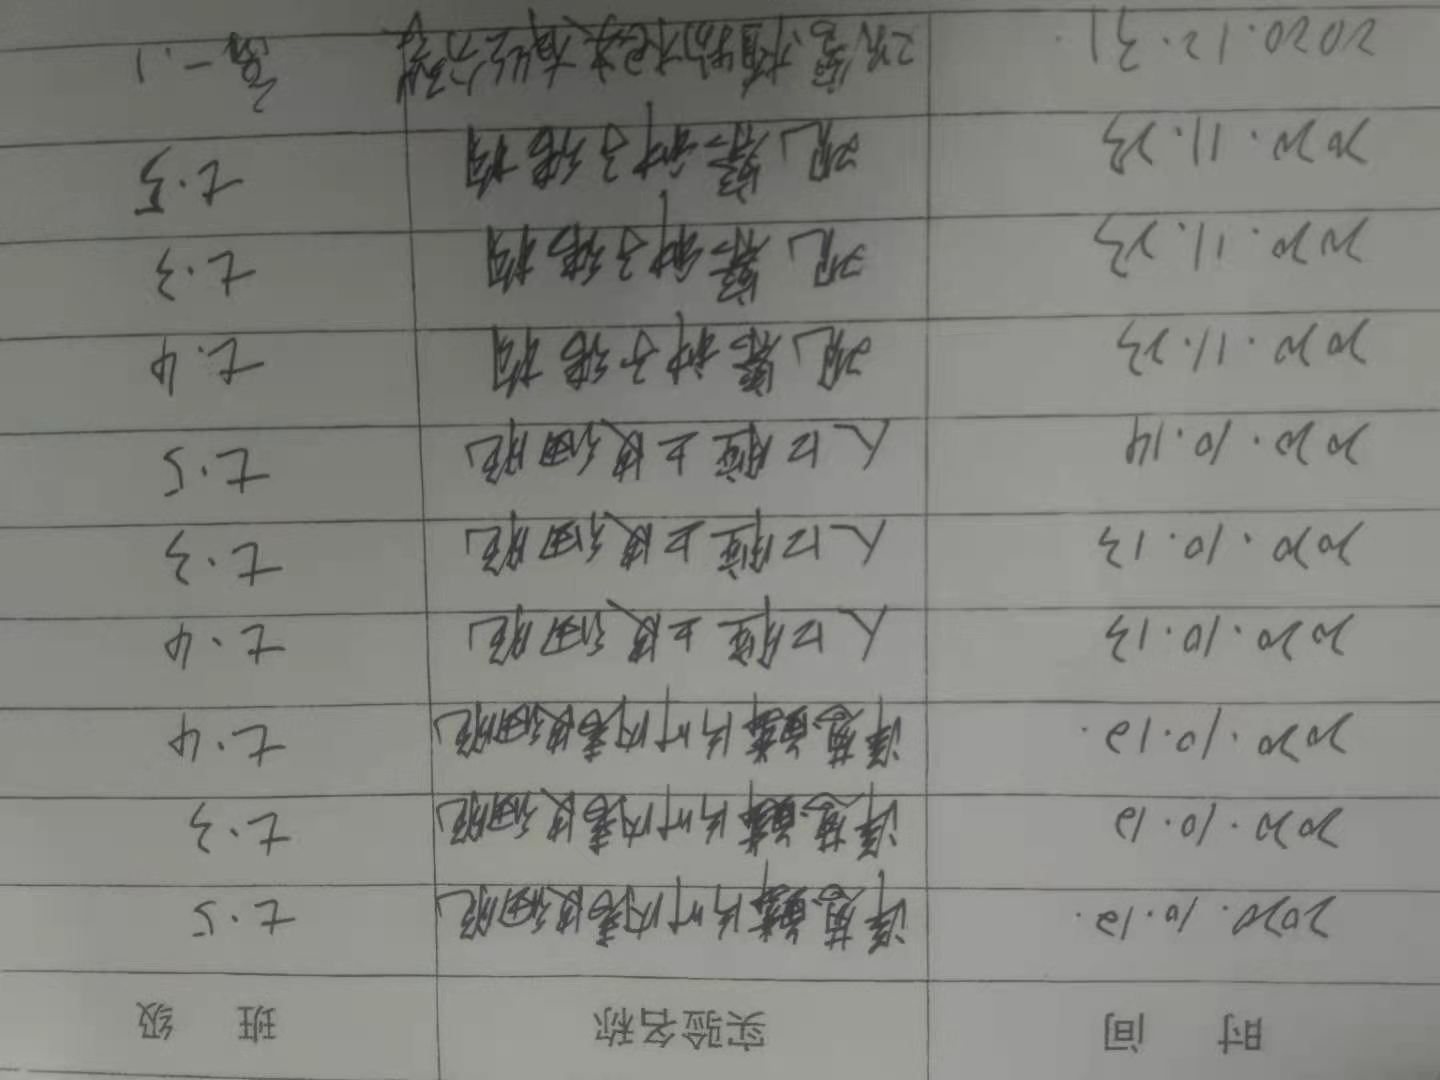 时 间 实验名称 班 级
2020.10.12. 洋葱鳞片叶内表皮细胞 七.5
2020.10.12 洋葱鳞片叶内表皮细胞 七.3
2020.10.12. 洋葱鳞片叶内表皮细胞 七.4
2020.10.13 人口腔上皮细胞 七.4
2020.10.13 人口腔上皮细胞 七.3
2020.10.14 人口腔上皮细胞 七.5
2020.11.23 观察种子结构 七.4
2020.11.23 观察种子结构 七.3
2020.11.23 观察种子结构 七.5
2020.12.31. 观察植物根尖有丝分裂 高一.1